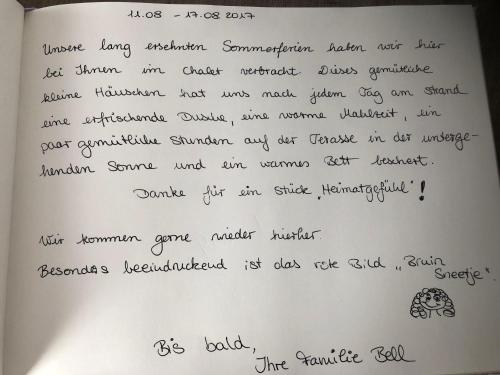 11.08 - 17.08 2017
Unsere lang ersehnten Sommerferien haben wir hier
bei Ihnen im Chalet verbracht. Dieses gemütliche
kleine Häuschen hat uns nach jedem Tag am Strand
eine erfrischende Dusche, eine warme Mahlzeit, ein
paar gemütliche Stunden auf der Terasse in der unterge-
henden Sonne und ein warmes Bett beschert.
Danke für ein Stück „Heimatgefühl"!
Wir kommen gerne wieder hierher.
Besonders beeindruckend ist das rote Bild „Bruin
Sneetje".
Bis bald,
Ihre Familie Bell